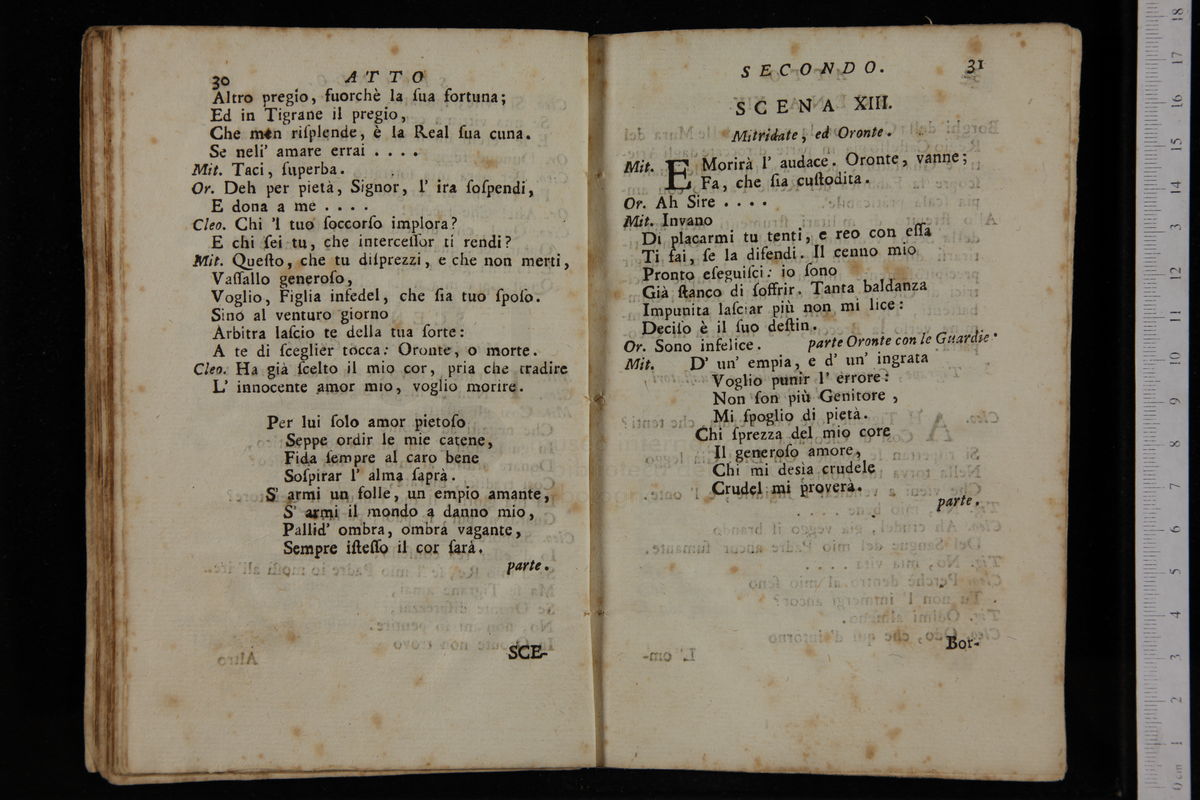 30 ATTO
Altro pregio, fuorchè la ſua fortuna;
Ed in Tigrane il pregio,
Che men riſplende, è la Real ſua cuna.
Se nell' amare errai . . . .
Mit. Taci, ſuperba.
Or. Deh per pietà, Signor, l' ira ſoſpendi,
E dona a me . . . .
Cleo. Chi 'l tuo ſoccorſo implora?
E chi ſei tu, che interceſſor ti rendi?
Mit. Queſto, che tu diſprezzi, e che non merti,
Vaſſallo generoſo,
Voglio, Figlia infedel, che ſia tuo ſpoſo.
Sino al venturo giorno
Arbitra laſcio te della tua ſorte:
A te di ſceglier tocca: Oronte, o morte.
Cleo. Ha già ſcelto il mio cor, pria che tradire
L' innocente amor mio, voglio morire.
Per lui ſolo amor pietoſo
Seppe ordir le mie catene,
Fida ſempre al caro bene
Soſpirar l' alma ſaprà.
S' armi un folle, un empio amante,
S' armi il mondo a danno mio,
Pallid' ombra, ombra vagante,
Sempre iſteſſo il cor ſarà.
parte.
SCE-
SECONDO. 31
SCENA XIII.
Mitridate, ed Oronte.
Mit. E Morirà l' audace. Oronte, vanne;
Fa, che ſia cuſtodita.
Or. Ah Sire . . . .
Mit. Invano
Di placarmi tu tenti, e reo con eſſa
Ti fai, ſe la difendi. Il cenno mio
Pronto eſeguiſci: io ſono
Già ſtanco di ſoffrir. Tanta baldanza
Impunita laſciar più non mi lice:
Deciſo è il ſuo deſtin.
Or. Sono infelice. parte Oronte con le Guardie.
Mit. D' un' empia, e d' un' ingrata
Voglio punir l' errore:
Non ſon più Genitore,
Mi ſpoglio di pietà.
Chi ſprezza del mio core
Il generoſo amore,
Chi mi desìa crudele
Crudel mi proverà.
parte.
Bor-